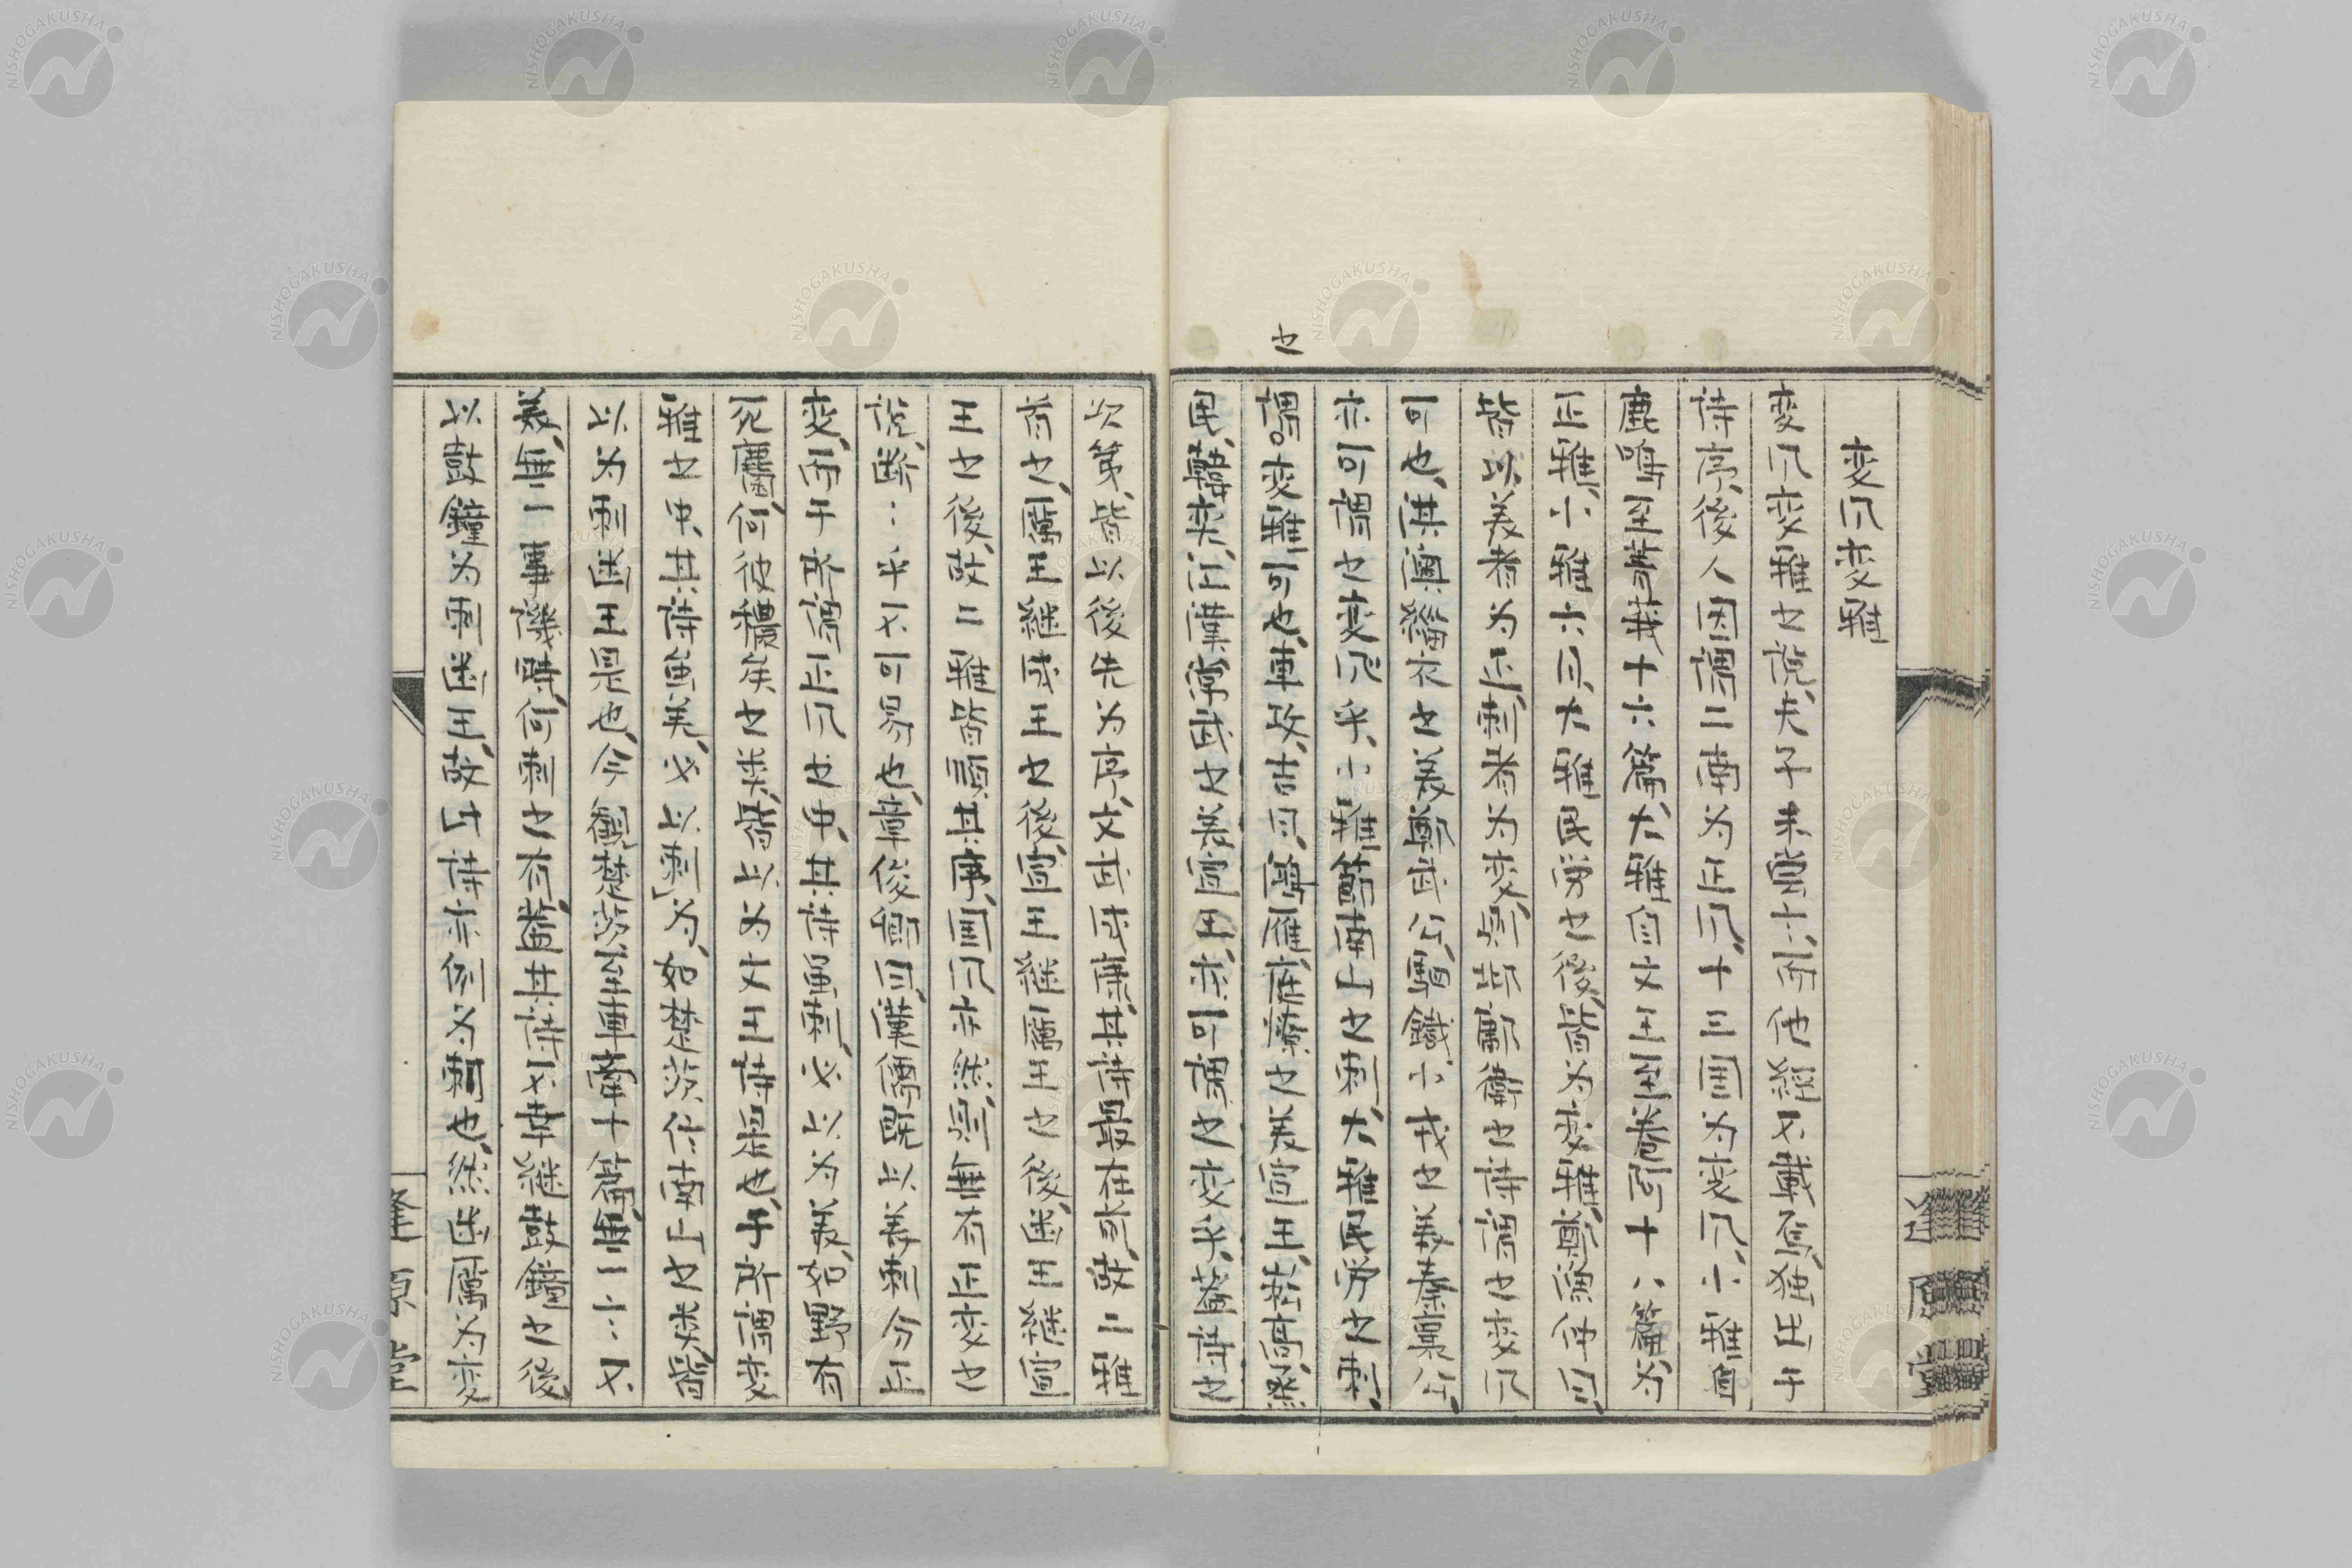 变风变雅
变风变雅之說、夫子未曾六、而他經不載焉、独出于
詩序、後人因謂二南为正风、十三国为变风、小雅自
鹿鳴至菁莪十六篇、大雅自文王至卷阿十八篇为
正雅、小雅六月大雅民労之後、皆为变雅、鄭漁仲曰、
皆以美者为正、刺者为变、則邶鄘衛之詩謂之变风
可也、淇奧緇衣之美鄭武公、駟鐵小戎之美秦襄公、
亦可謂之变风乎、小雅節南山之刺、大雅民労之刺、
謂。变雅可也、車攻、吉日、鴻雁、庭燎之美宣王、崧高、烝
之
民、韓奕、江漢常武之美宣王、亦可謂之变乎、蓋詩之
次第、皆以後先为序、文武成康、其詩最在前、故二雅
首之、厲王継成王之後、宣王継厲王之後、幽王継宣
王之後、故二雅皆順其序、国风亦然、則無有正变之
說、断：乎不可易也、章俊卿曰、漢儒既以美刺分正
变、而于所謂正风之中、其詩虽刺、必以为美、如野有
死麕、何彼穠矣之类、皆以为文王詩是也、于所謂变
雅之中、其詩虽美、必以刺为、如楚茨信南山之类、皆
以为刺幽王是也、今観楚茨至車舝十篇、無一言不
美、無一事譏時、何刺之有、蓋其詩不幸継鼓鐘之後
以鼓鐘为刺幽王、故此詩亦例为刺也、然幽厲为变
隆原堂